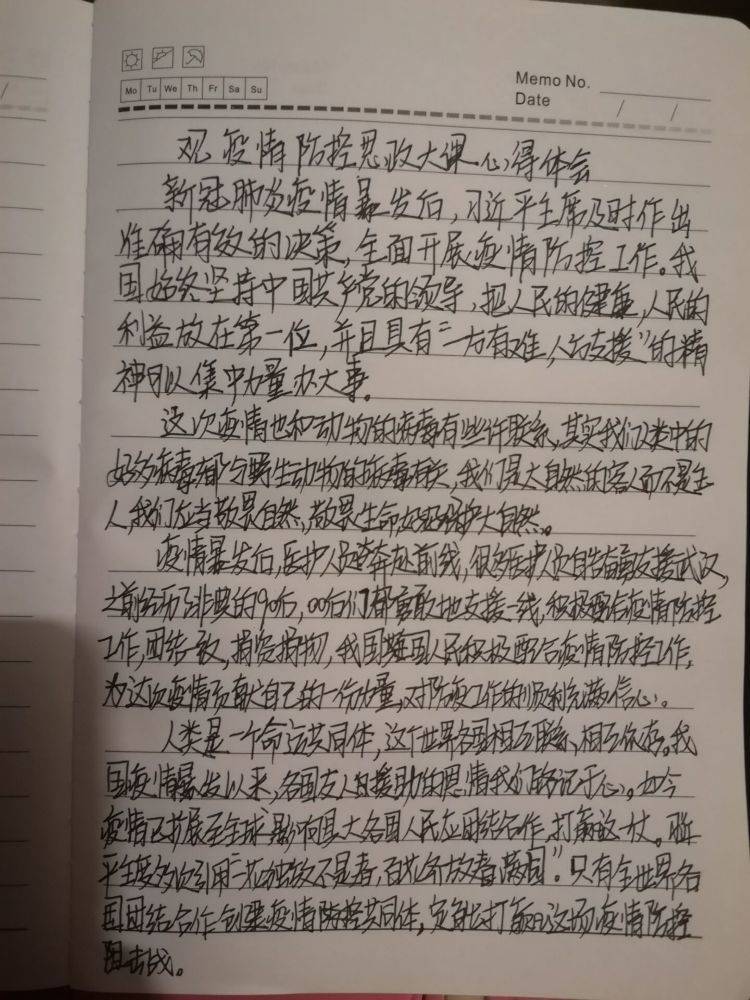 Mo Tu We Th Fr Sa Su
Memo No.
Date / /
观疫情防控思政大课心得体会
新冠肺炎疫情暴发后,习近平主席及时作出
准确有效的决策,全面开展疫情防控工作。我
国始终坚持中国共产党的领导,把人民的健康,人民的
利益放在第一位,并且具有“一方有难,八方支援”的精
神可以集中力量办大事。
这次疫情也和动物的病毒有些许联系,其实我们人类中的
好多病毒都与野生动物的病毒有关,我们是大自然的客人而不是主
人,我们应当敬畏自然,敬畏生命,好好保护大自然。
疫情暴发后,医护人员奔赴前线,很多医护人员自告奋勇支援武汉,
之前经历非典的90后,00后们都勇敢地支援一线,积极配合疫情防控
工作,团结一致,捐资捐物,我国各国人民积极配合疫情防控工作,
为这次疫情贡献自己的一份力量,对防疫工作的顺利充满信心。
人类是一个命运共同体,这个世界各国相互联系、相互依存。我
国疫情暴发以来,各国友人的援助的恩情我们铭记于心。如今
疫情已扩展至全球,影响巨大各国人民应团结合作,打赢这一仗。习近
平主席多次引用“一花独放不是春,百花齐放春满园”。只有全世界各
国团结合作创建疫情防控共同体,定能打赢这场疫情防控
阻击战。